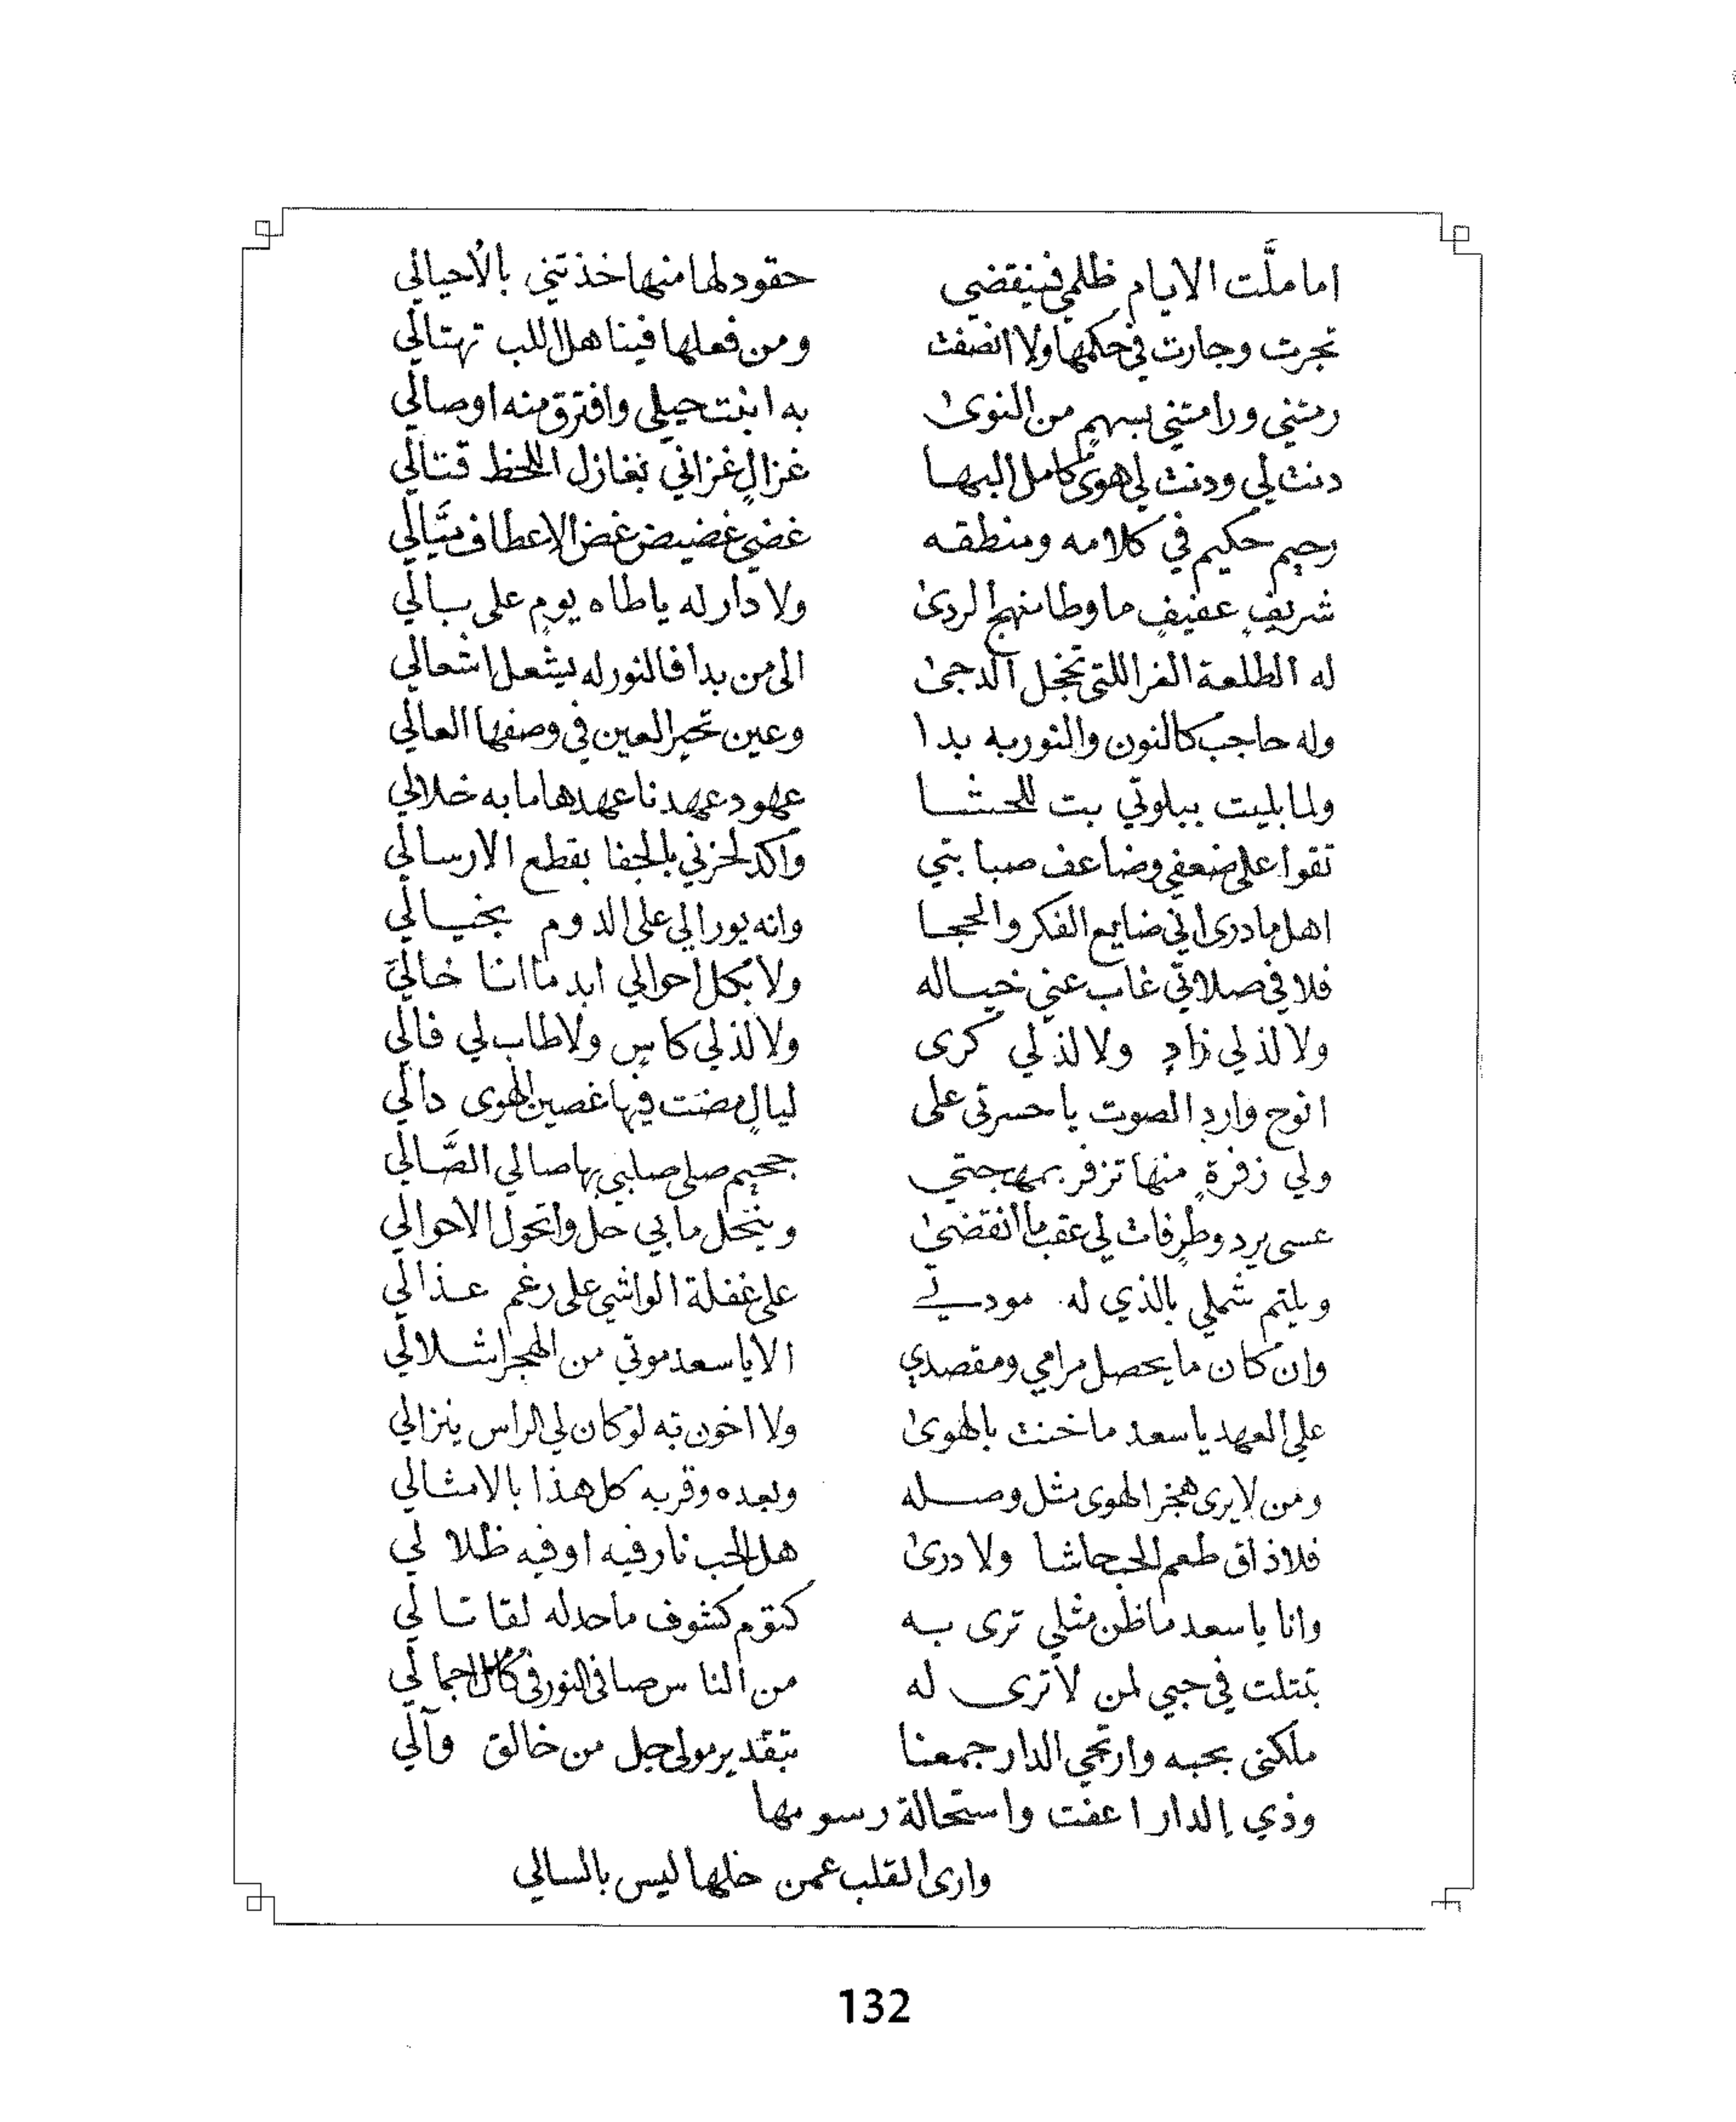 اما ملَّت الايام ظلمي فينقضي حقود لها منها خذتني بالاحيالي
تجرت وجارت في حكمها ولا انصفت ومن فعلها فينا هل اللب تهتالي
رمتني ورامتني بسهمٍ من النوىٰ به ابنت حيلي وافترق منه اوصالي
دنت لي ودنت لي هوىٰ كامل البها غزالٍ غزاني بغازل اللحظ قتالي
رحيم حكيم في كلامه ومنطقه غضيٍ غضيض غض الاعطاف ميَّالي
شريفٍ عفيفٍ ما وطا منهج الردىٰ ولا دار له ياطاه يومٍ على بالي
له الطلعة الغرا اللتي تخجل الدجىٰ الى من بدا فالنور له يشعل اشعالي
وله حاجب كالنون والنور به بدا وعين تحير العين في وصفها العالي
ولما بليت ببلوتي بت للحشا عهود عهدنا عهدها ما به خلالي
تقوا على ضعفي وضاعف صبابتي واكد لحزني بالجفا بقطع الارسالي
اهل ما درى اني ضايع الفكر والحجا وانه يورالي على الدوم بخيالي
فلا في صلاتي غاب عني خياله ولا بكل احوالي ابد ما انا خالي
ولا لذ لي زادٍ ولا لذ لي كرى ولا لذ لي كاسٍ ولا طاب لي فالي
انوح وارد الصوت يا حسرتي على ليالٍ مضت فيها غصين الهوى دالي
ولي زفرةٍ منها تزفر بمهجتي جحيم صلى صلبي بها صالي الصَّالي
عسى يرد وطرٍ فات لي عقب ما انقضىٰ وينحل ما بي حل واتحول الاحوالي
ويلتم شملي بالذي له مودي على غفلة الواشي على رغم عذالي
وان كان ما يحصل مرامي ومقصدي الا يا سعد موتي من الهجر اشلالي
على العهد يا سعد ما خنت بالهوىٰ ولا اخون به لو كان لي الراس ينزالي
ومن لا يرى هجر الهوى مثل وصله وبعده وقربه كل هذا بالامثالي
فلا ذاق طعم الحب حاشا ولا درىٰ هل الحب نار فيه او فيه ظلالي
وانا يا سعد ما ظن مثلي ترى به كتوم كشوف ما حد له لقا تالي
بتتلت في حبي لمن لا ترى له من الناس صافي النور في كامل اجمالي
ملكني بحبه وارتجي الدار جمعنا بتقدير مولى جل من خالق وآلي
وذي الدار اعفت واستحالة رسومها
وارى القلب عمن خلها ليس بالسالي
132